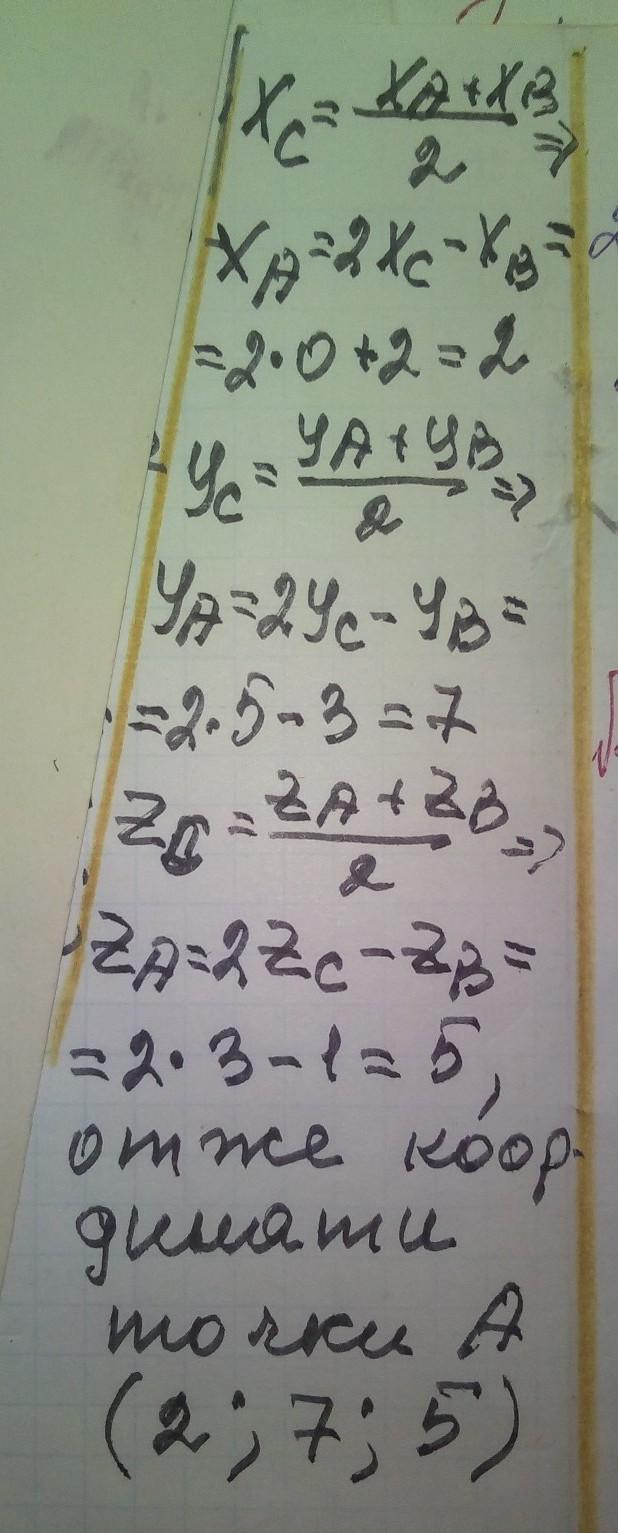 X_C = (X_A + X_B)/2 ⇒
X_A = 2X_C - X_B =
= 2·0 + 2 = 2
y_C = (y_A + y_B)/2 ⇒
y_A = 2y_C - y_B =
= 2·5 - 3 = 7
Z_C = (Z_A + Z_B)/2 ⇒
Z_A = 2Z_C - Z_B =
= 2·3 - 1 = 5,
отже коор-
динати
точки A
(2; 7; 5)